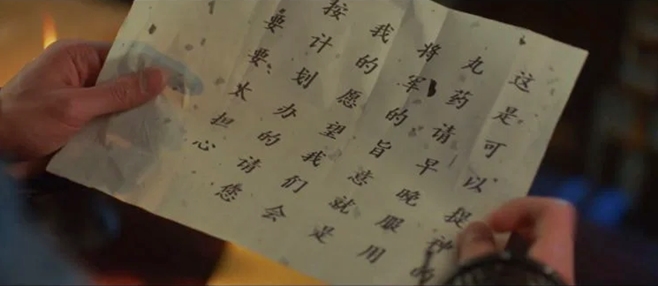 这是可以提神的
丸药请早晚服用
将军的旨意就是
我的愿望我们会
按计划办的请您
要要太担心